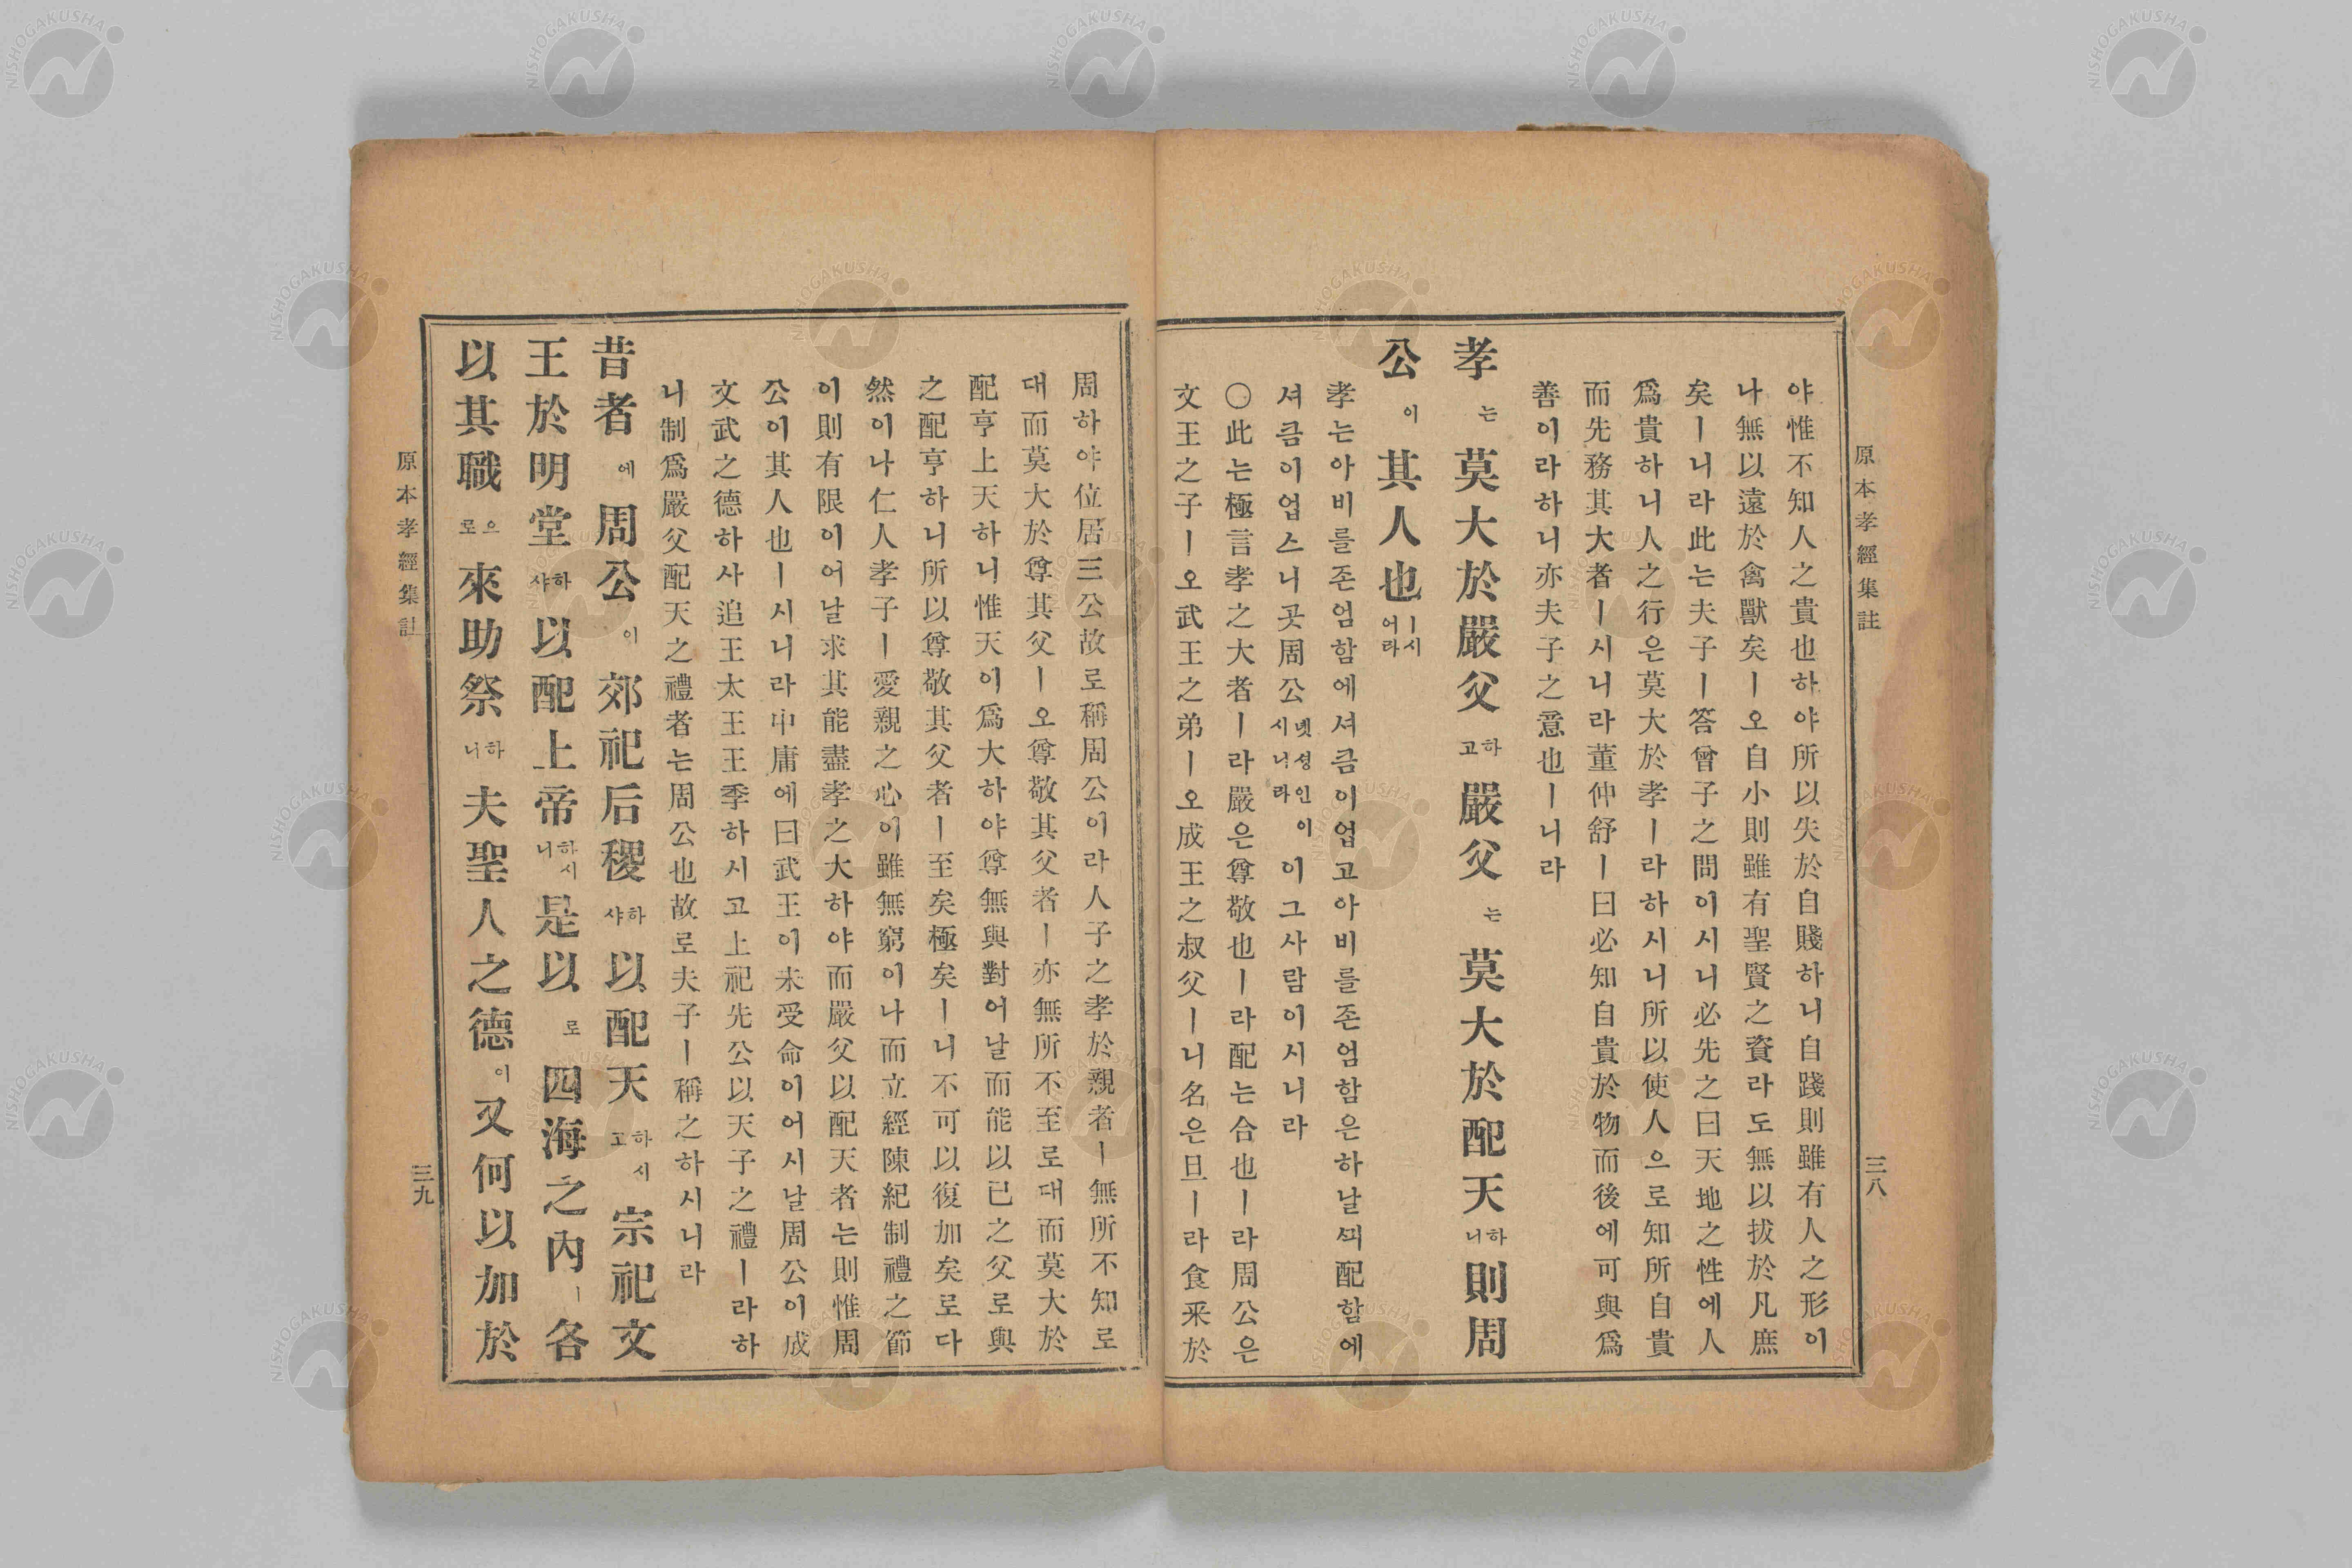 原本孝經集註
三八
야惟不知人之貴也하야所以失於自賤하니自踐則雖有人之形이
나無以遠於禽獸矣ㅣ오自小則雖有聖賢之資라도無以拔於凡庶
矣ㅣ니라此는夫子ㅣ答曾子之問이시니必先之曰天地之性에人
爲貴하니人之行은莫大於孝ㅣ라하시니所以使人으로知所自貴
而先務其大者ㅣ시니라董仲舒ㅣ曰必知自貴於物而後에可與爲
善이라하니亦夫子之意也ㅣ니라
孝는莫大於嚴父하고嚴父는莫大於配天하니則周
公이其人也ㅣ시어라
孝는아비를존엄함에셔큼이업고아비를존엄함은하날ᄭᅴ配함에
셔큼이업스니곳周公녯셩인이시니라이그사람이시니라
○此는極言孝之大者ㅣ라嚴은尊敬也ㅣ라配는合也ㅣ라周公은
文王之子ㅣ오武王之弟ㅣ오成王之叔父ㅣ니名은旦ㅣ라食采於
周하야位居三公故로稱周公이라人子之孝於親者ㅣ無所不知로
대而莫大於尊其父ㅣ오尊敬其父者ㅣ亦無所不至로대而莫大於
配亨上天하니惟天이爲大하야尊無與對어날而能以已之父로與
之配亨하니所以尊敬其父者ㅣ至矣極矣ㅣ니不可以復加矣로다
然이나仁人孝子ㅣ愛親之心이雖無窮이나而立經陳紀制禮之節
이則有限이어날求其能盡孝之大하야而嚴父以配天者는則惟周
公이其人也ㅣ시니라中庸에曰武王이末受命이어시날周公이成
文武之德하사追王太王王季하시고上祀先公以天子之禮ㅣ라하
니制爲嚴父配天之禮者는周公也故로夫子ㅣ稱之하시니라
昔者에周公이郊祀后稷하샤以配天하시고宗祀文
王於明堂하샤以配上帝하시니是以로四海之內ㅣ各
以其職으로來助祭하니夫聖人之德이又何以加於
原本孝經集註
三九